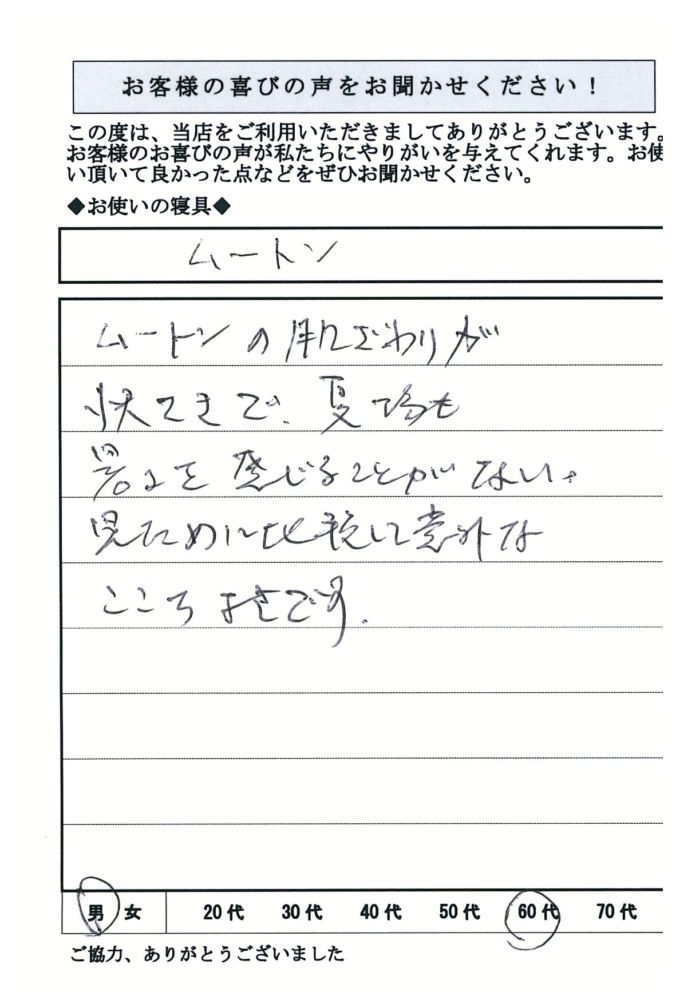 お客様の喜びの声をお聞かせください！
この度は、当店をご利用いただきましてありがとうございます。
お客様のお喜びの声が私たちにやりがいを与えてくれます。お使
い頂いて良かった点などをぜひお聞かせください。
◆お使いの寝具◆
ムートン
ムートンの肌ざわりが
快てきで、夏場も
暑さを感じることがない。
見ために比較して意外な
ここちよさです。
男 女 20代 30代 40代 50代 60代 70代
ご協力、ありがとうございました